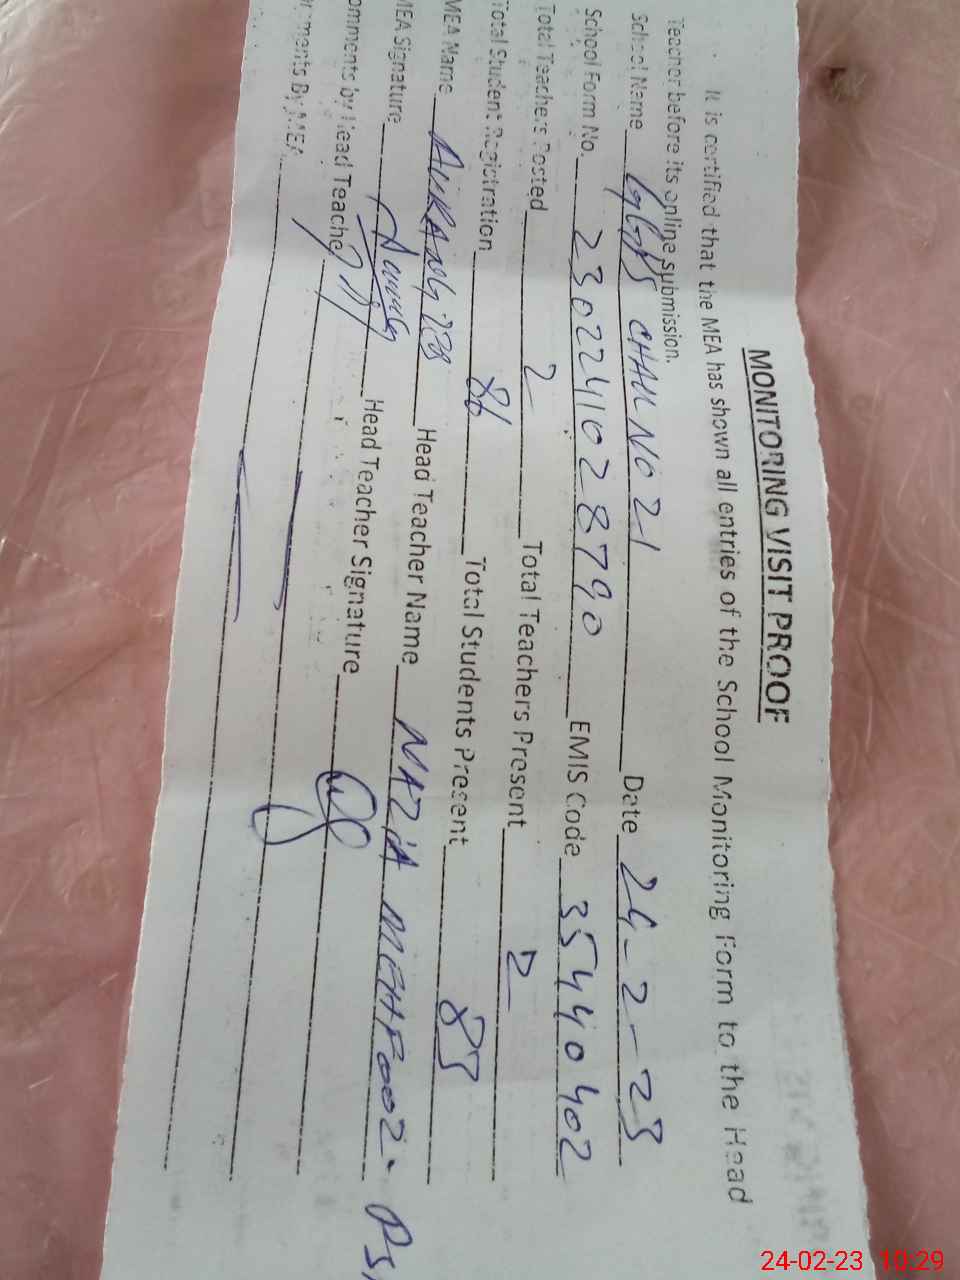 MONITORING VISIT PROOF
It is certified that the MEA has shown all entries of the School Monitoring Form to the Head
Teacher before its online submission.
School Name GGPS CHAK NO 21 Date 24-2-23
School Form No. 2302241028790 EMIS Code 35440402
Total Teachers Posted 2 Total Teachers Present 2
Total Student Registration 86 Total Students Present 85
MEA Name AURANGZEB Head Teacher Name NAZIA MEHFOOZ
MEA Signature Head Teacher Signature
omments by Head Teache
ments By MEA
24-02-23 10:29